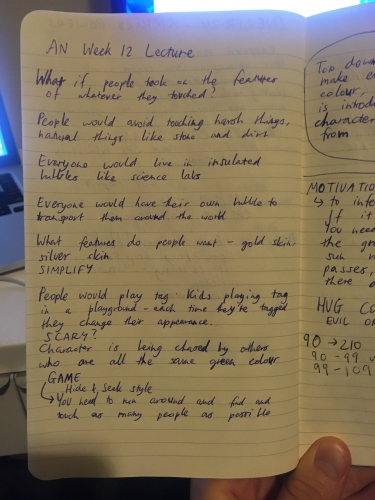 AN Week 12 Lecture
What if people took on the features
of whatever they touched?
People would avoid touching harsh things,
natural things like stone and dirt.
Everyone would live in insulated
bubbles like science labs
Everyone would have their own bubble to
transport them around the world
What features do people want - gold skin,
silver skin
SIMPLIFY
People would play tag. Kids playing tag
in a playground - each time they're tagged
they change their appearance.
SCARY?
Character is being chased by others
who are all the same green colour
GAME
Hide & Seek style
You need to run around and find and
touch as many people as possible
Top down
make
colour,
is introd
character
from
MOTIVATIO
↳ to
If it
You need
the
sun
passes,
there
HUG
EVIL
90 → 210
90 - 99
99 - 109